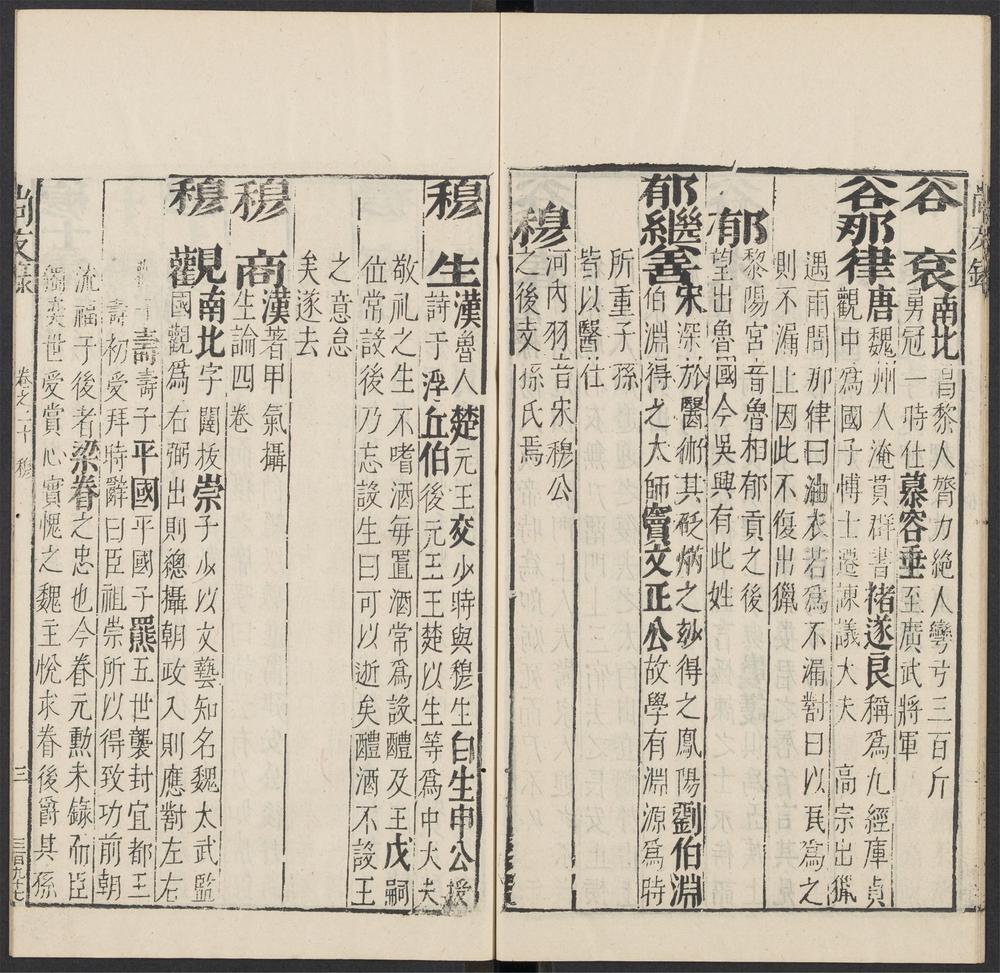 尚友錄
谷　袞南北昌黎人膂力絶人彎弓三百斤
勇冠一時仕慕容垂至廣武將軍
谷那律唐魏州人淹貫群書褚遂良稱爲九經庫貞
觀中爲國子博士遷諫議大夫　高宗出獵
遇雨問那律曰油衣若爲不漏對曰以瓦爲之
則不漏上因此不復出獵
郁
黎陽宮音魯相郁貢之後
望出魯國今吳興有此姓
郁繼善宋深於醫術其砭焫之玅得之鳳陽劉伯淵
伯淵得之太師竇文正公故學有淵源爲時
所重子孫
皆以醫仕
穆
河內羽音宋穆公
之後支孫氏焉
穆　生漢魯人楚元王交少時與穆生白生申公授
詩于浮丘伯後元王王楚以生等爲中大夫
敬礼之生不嗜酒每置酒常爲設醴及王戊嗣
位常設後乃忘設生曰可以逝矣醴酒不設王
之意怠
矣遂去
穆　商漢著甲氣攝
生論四卷
穆　觀南北字闥拔崇子少以文藝知名魏太武監
國觀爲右弼出則總攝朝政入則應對左右
壽壽子平國平國子羆五世襲封宜都王
壽初受拜時辭曰臣祖崇所以得致功前朝
流福于後者梁眷之忠也今眷元勲未錄而臣
獨奕世受賞心實愧之魏主悅求眷後爵其孫
尚友錄
卷之二十　穆
三
三百九十七